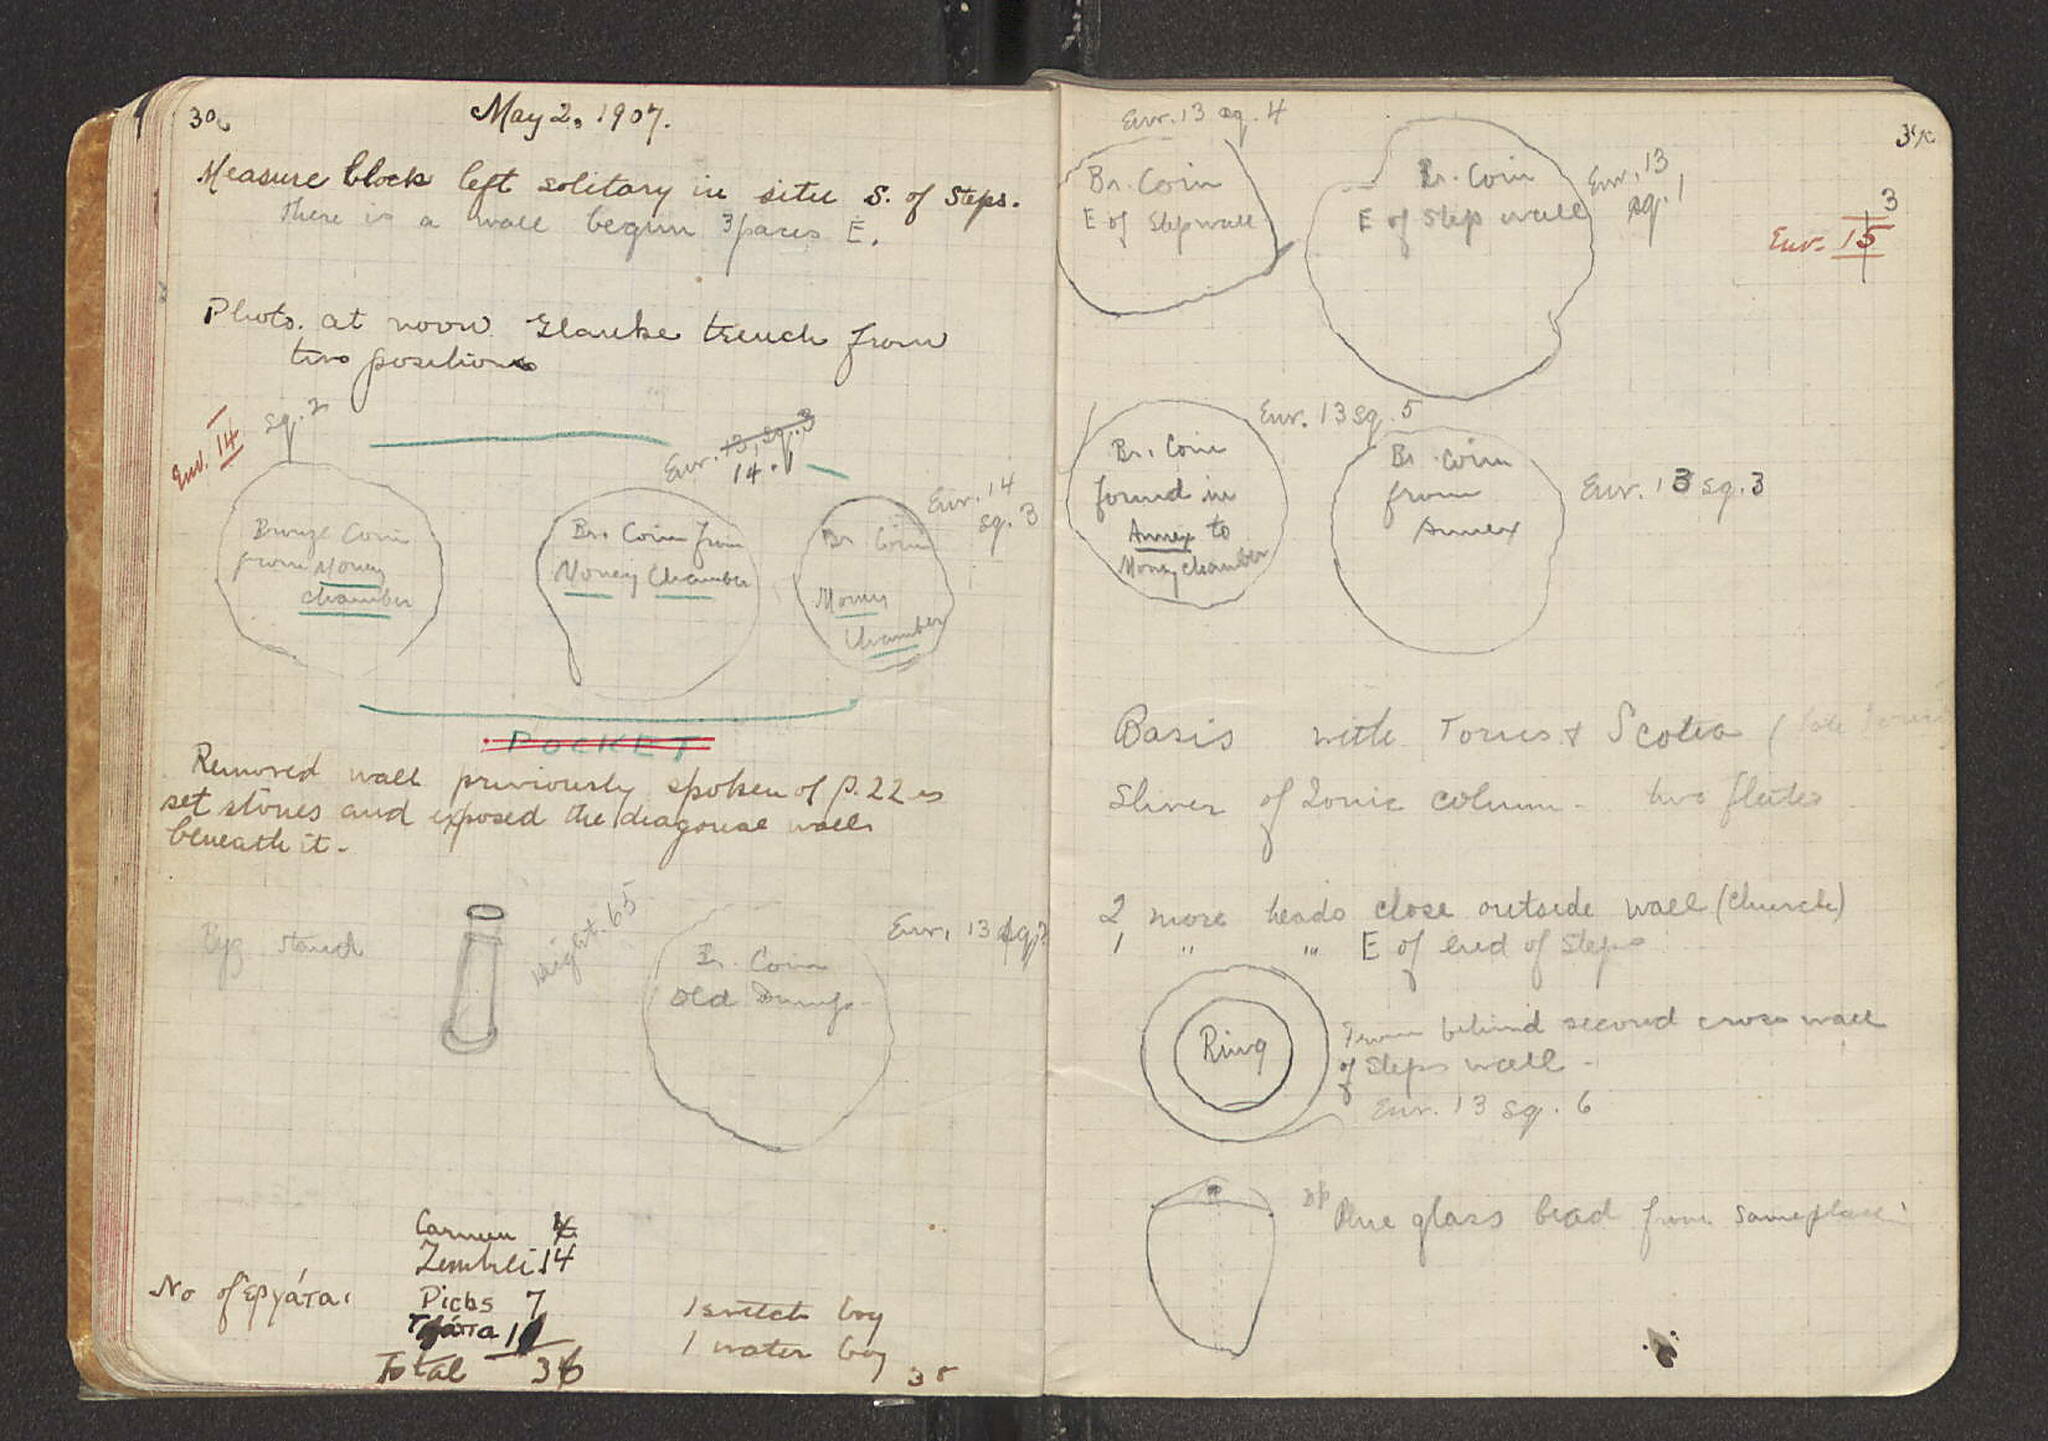 30
May 2, 1907.
Measure block left solitary in situ S. of Steps.
There is a wall begun 3 paces E.
Photo. at noon Glauke trench from
two positions
Env. 14
sq. 2
Env. 13, sq. 3
14. 1
Env. 14
sq. 3
Bronze Coin
from Money
Chamber
Br. Coin from
Money Chamber
Br Coin
Money
Chamber
POCKET
Removed wall previously spoken of p. 22 as
set stones and exposed the diagonal walls
beneath it -
Byz stand
Height .65
Br. Coin
Old Dump
Env. 13 sq. 2
No of ἐργάται
Carmen
Zembeli 14
Picks 7
Total 36
1 switch boy
1 water boy
38
Env. 13 sq. 4
Br. Coin
E of Step wall
Br. Coin
E of Step wall
Env. 13
sq. 1
3
Env. 15
Br. Coin
found in
Annex to
Money chamber
Env. 13 sq. 5
Br Coin
from
Annex
Env. 13 sq. 3
Basis with Torus & Scotia (late
Sliver of Ionic column - two flutes
2 more heads close outside wall (Church)
1 " " E of end of Steps
Ring
From behind second cross wall
of Steps wall -
Env. 13 sq. 6
Blue glass bead from same place